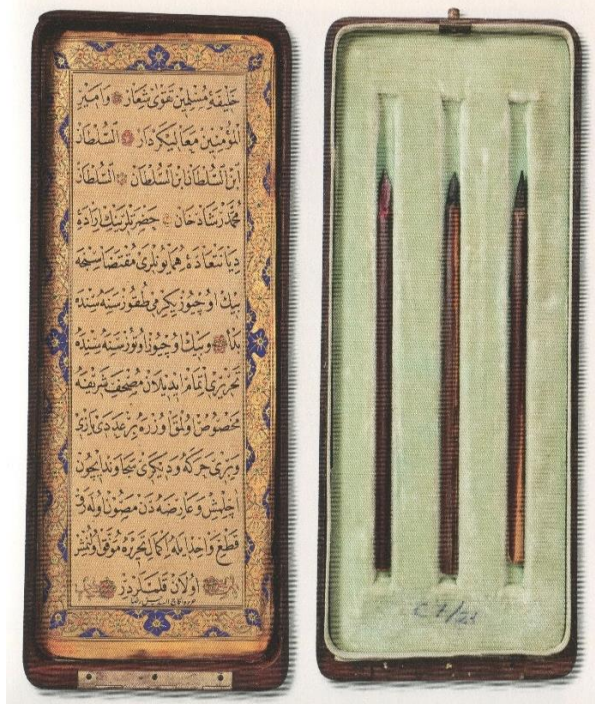 خليفهٔ مسلمين تقوى شعار وامير
المؤمنين معاليكردار السلطان
ابن السلطان ابن السلطان السلطان
محمد رشاد خان حضرتلرينك ارادهٔ
ديانتعادهٔ همايونلرى مقتضاسنجه
بيك اوچيوز يكرمى طقوز سنه سنده
بدأ وبيك اوچيوز اوتوز سنه سنده
تحريرى اتمام ايديلان مصحف شريفه
مخصوص اولمق اوزره بر عددى يازى
وبرى حركه وديكرى سجاوند ايچون
آچلمش وعارضه دن مصون اوله رق
قطع واحد ايله اكمال تحريره موفق اولنمش
اولان قلملردر
C7/23